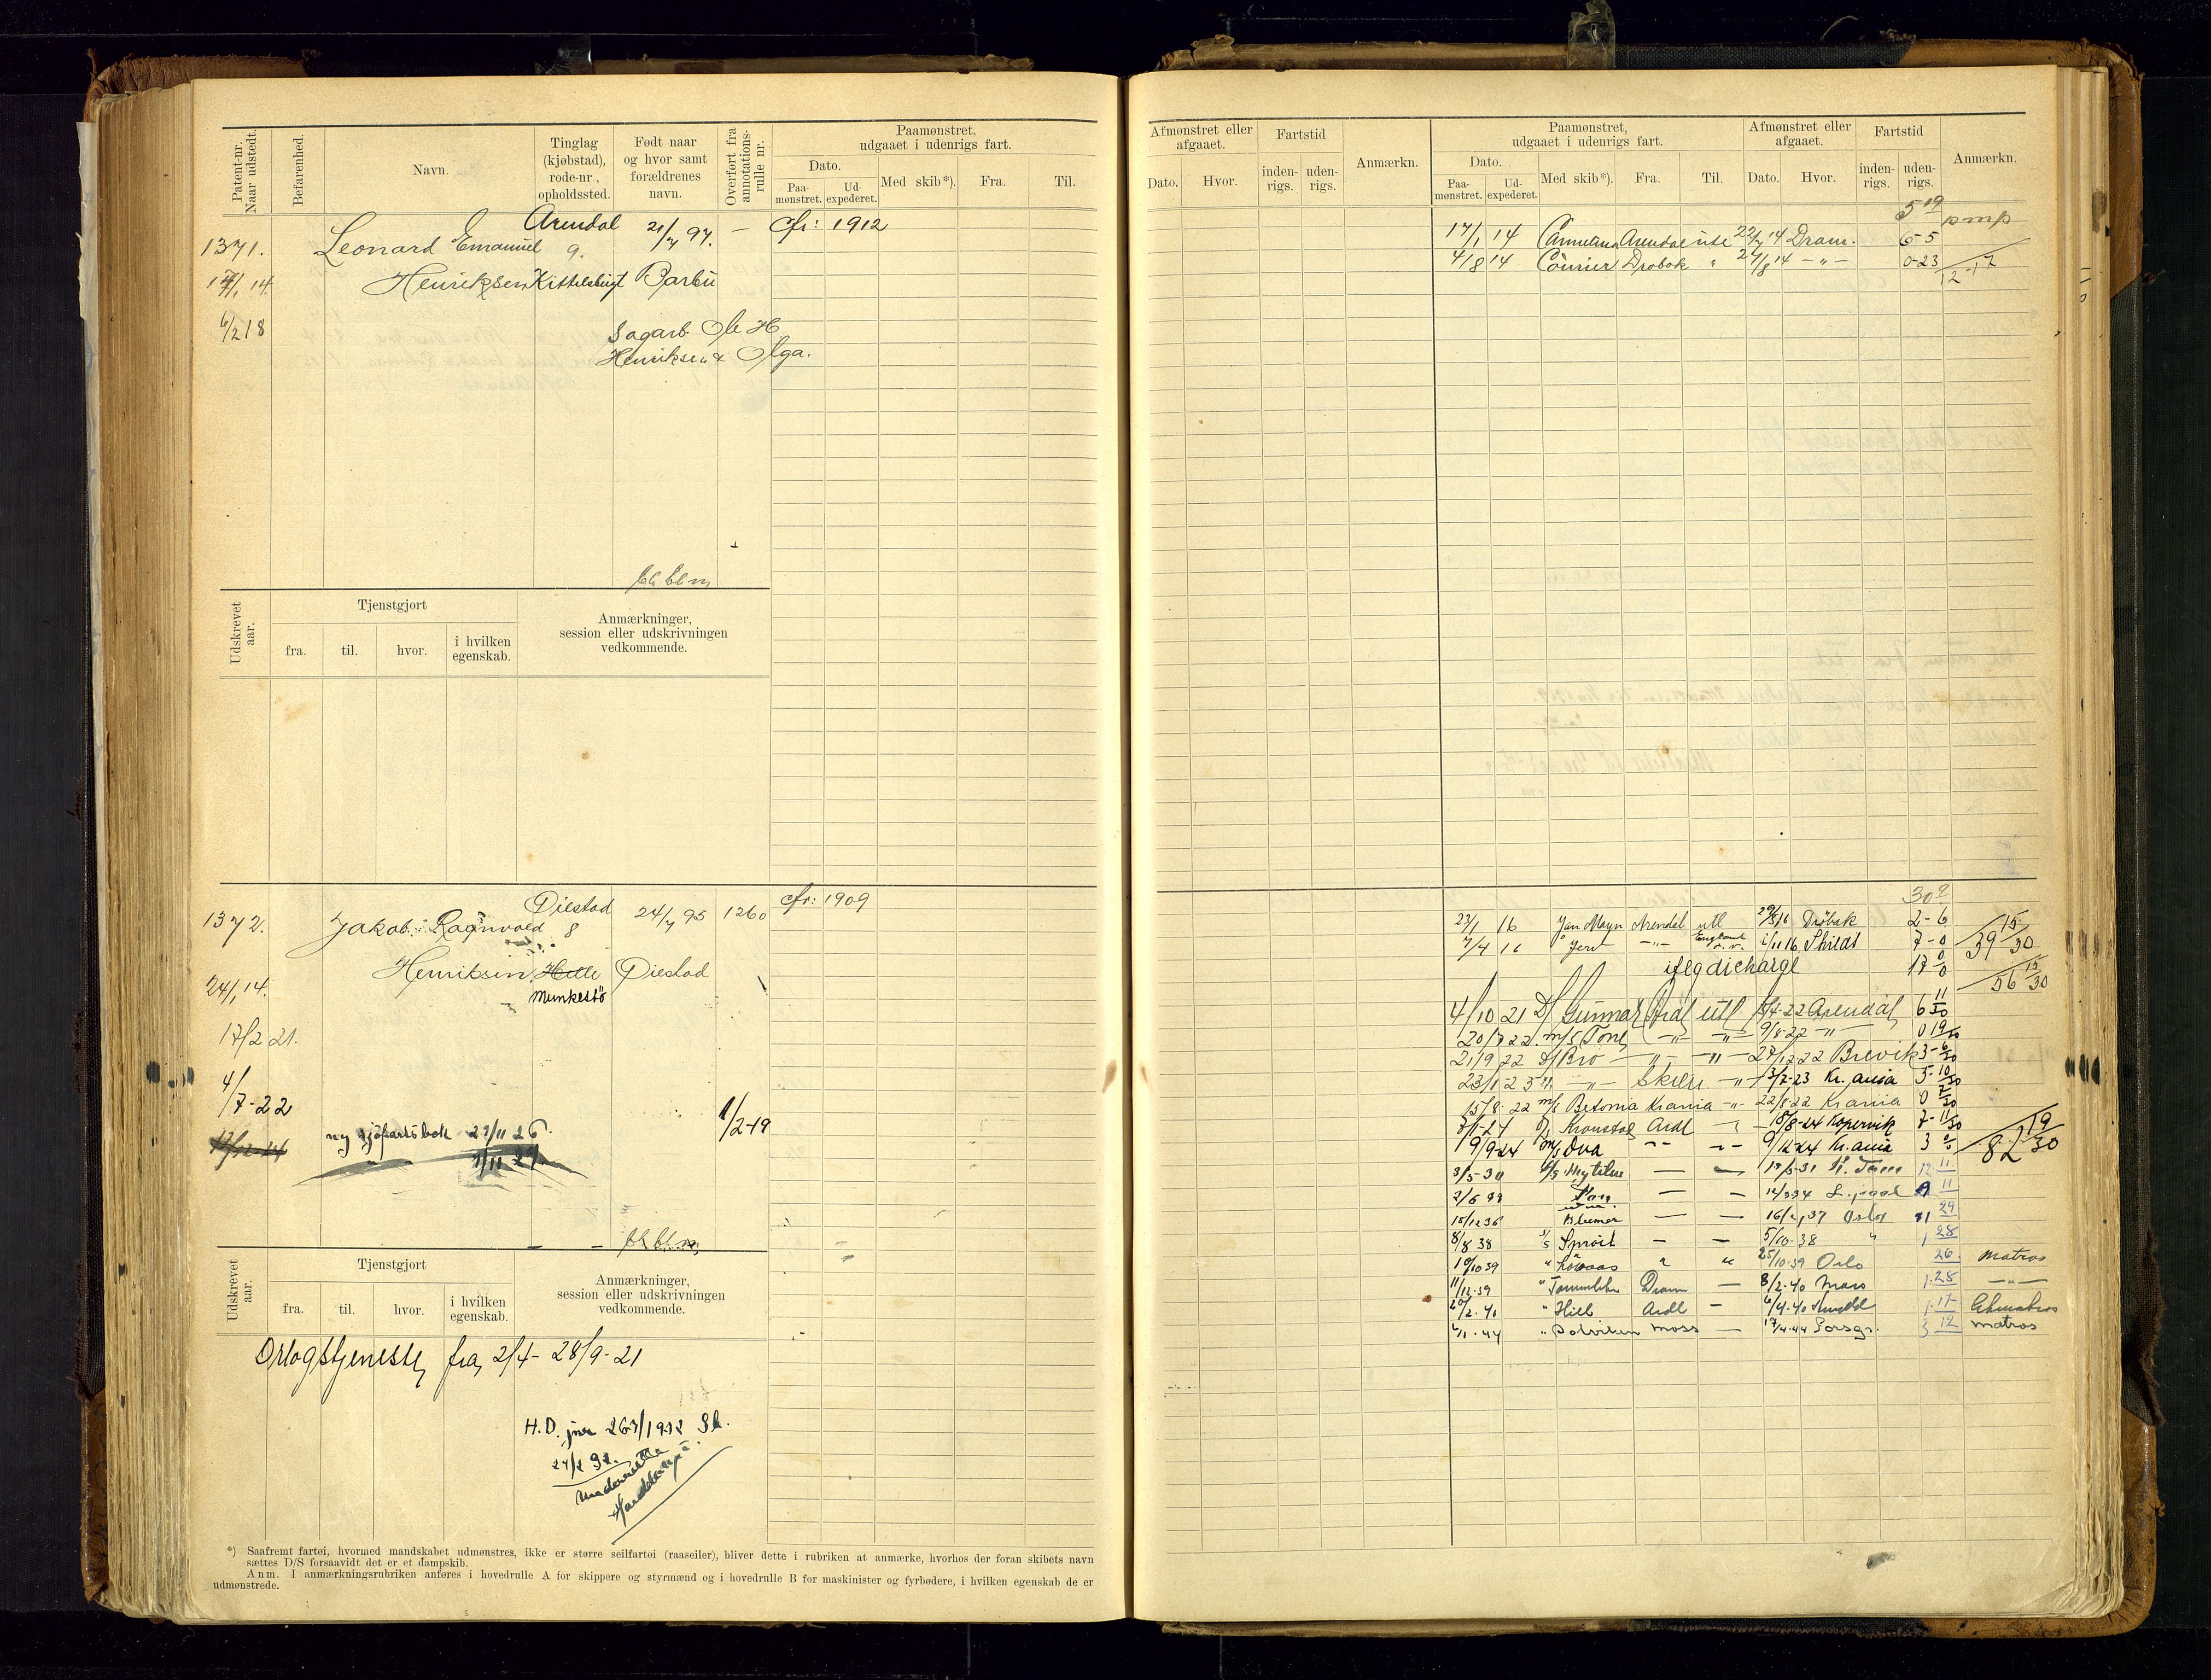 Patent-nr. Naar udstedt.
Befarenhed.
Navn.
Tinglag (kjøbstad), rode-nr, opholdssted.
Født naar og hvor samt forældrenes navn.
Overført fra annotations-rulle nr.
Paamønstret, udgaaet i udenrigs fart.
Dato.
Paa-mønstret.
Ud-expederet.
Med skib*).
Fra.
Til.
1371.
Leonard Emanuel
Arendal
9.
21/7 97.
—
cfr: 1912
17/1 14.
Henriksen
Kittelsbugt
Barbu
6/2 18
Sagarb. Ole H
Henriksen & Olga.
Udskrevet aar.
Tjenstgjort
fra.
til.
hvor.
i hvilken egenskab.
Anmærkninger, session eller udskrivningen vedkommende.
1372.
Jakob Ragnvald
Øiestad
8
24/7 95
1260
cfr: 1909
24/1 14.
Henriksen
Hille
Øiestad
Munkestö
17/2 21.
4/7-22
1/2-19
ny sjøfartsbok 29/11 26.
Udskrevet aar.
Tjenstgjort
fra.
til.
hvor.
i hvilken egenskab.
Anmærkninger, session eller udskrivningen vedkommende.
Orlogstjeneste fra 2/4 - 28/9-21
H.D. jnr 263/1932
*) Saafremt fartøi, hvormed mandskabet udmønstres, ikke er større seilfartøi (raaseiler), bliver dette i rubriken at anmærke, hvorhos der foran skibets navn
sættes D/S forsaavidt det er et dampskib.
Anm. I anmærkningsrubriken anføres i hovedrulle A for skippere og styrmænd og i hovedrulle B for maskinister og fyrbødere, i hvilken egenskab de er
udmønstrede.
Afmønstret eller afgaaet.
Dato.
Hvor.
Fartstid
inden-rigs.
uden-rigs.
Anmærkn.
Paamønstret, udgaaet i udenrigs fart.
Dato.
Paa-mønstret.
Ud-expederet.
Med skib*).
Fra.
Til.
Afmønstret eller afgaaet.
Dato.
Hvor.
Fartstid
inden-rigs.
uden-rigs.
Anmærkn.
5 19 pmp
17/1 14 Arendal 22/7 14 Dram. 6-5
4/8 14 Courier Drobak " 27/8 14 -"- 0-23
12-17
30 9
23/1 16 Jan Mayn Arendal utl 29/3 16 Dröbak 2-6
7/4 16 -"- England 1/11 16 Shilds 7-0
39 15/30
iflg dicharge 17 0/0
56 15/30
4/10 21 D/ Gunnar Ardl utl 22 Arendal 6 11/30
20/7 22 m/s Tone -"- -"- 9/8-22 -"- 0 19/30
21/9 22 D/ Bro -"- -"- 27/12 22 Brevik 3-6/30
-"- Skien -"- 3/7-23 Kr.ania 5-10/30
15/8 22 m/s Betonia Krania -"- 22/8 22 Krania 0
Kronstad Ardl 18/8-24 Kopervik 7-11/30
9/9-24 Ova -"- -"- 9/12 24 Kr.ania 3 0/0
82 19/30
3/5-30 Mytilus — — 12 11
2/6 33 — — L.pool 9 11
15/12 36 Blumer — — 16/2 37 Oslo 1 29
8/8 38 S/S Sproit — — 5/10-38 " 1 28
10/10 39 " " " 25/10-39 Oslo 26 Matros
11/12-39 " Dram — 8/2-40 Moss 1.28 —"—
20/2-40 " Ardl — 6/4-40 1.17
6/1-44 " Solviken Moss — 17/4-44 Porsgr. 3 12 Matros